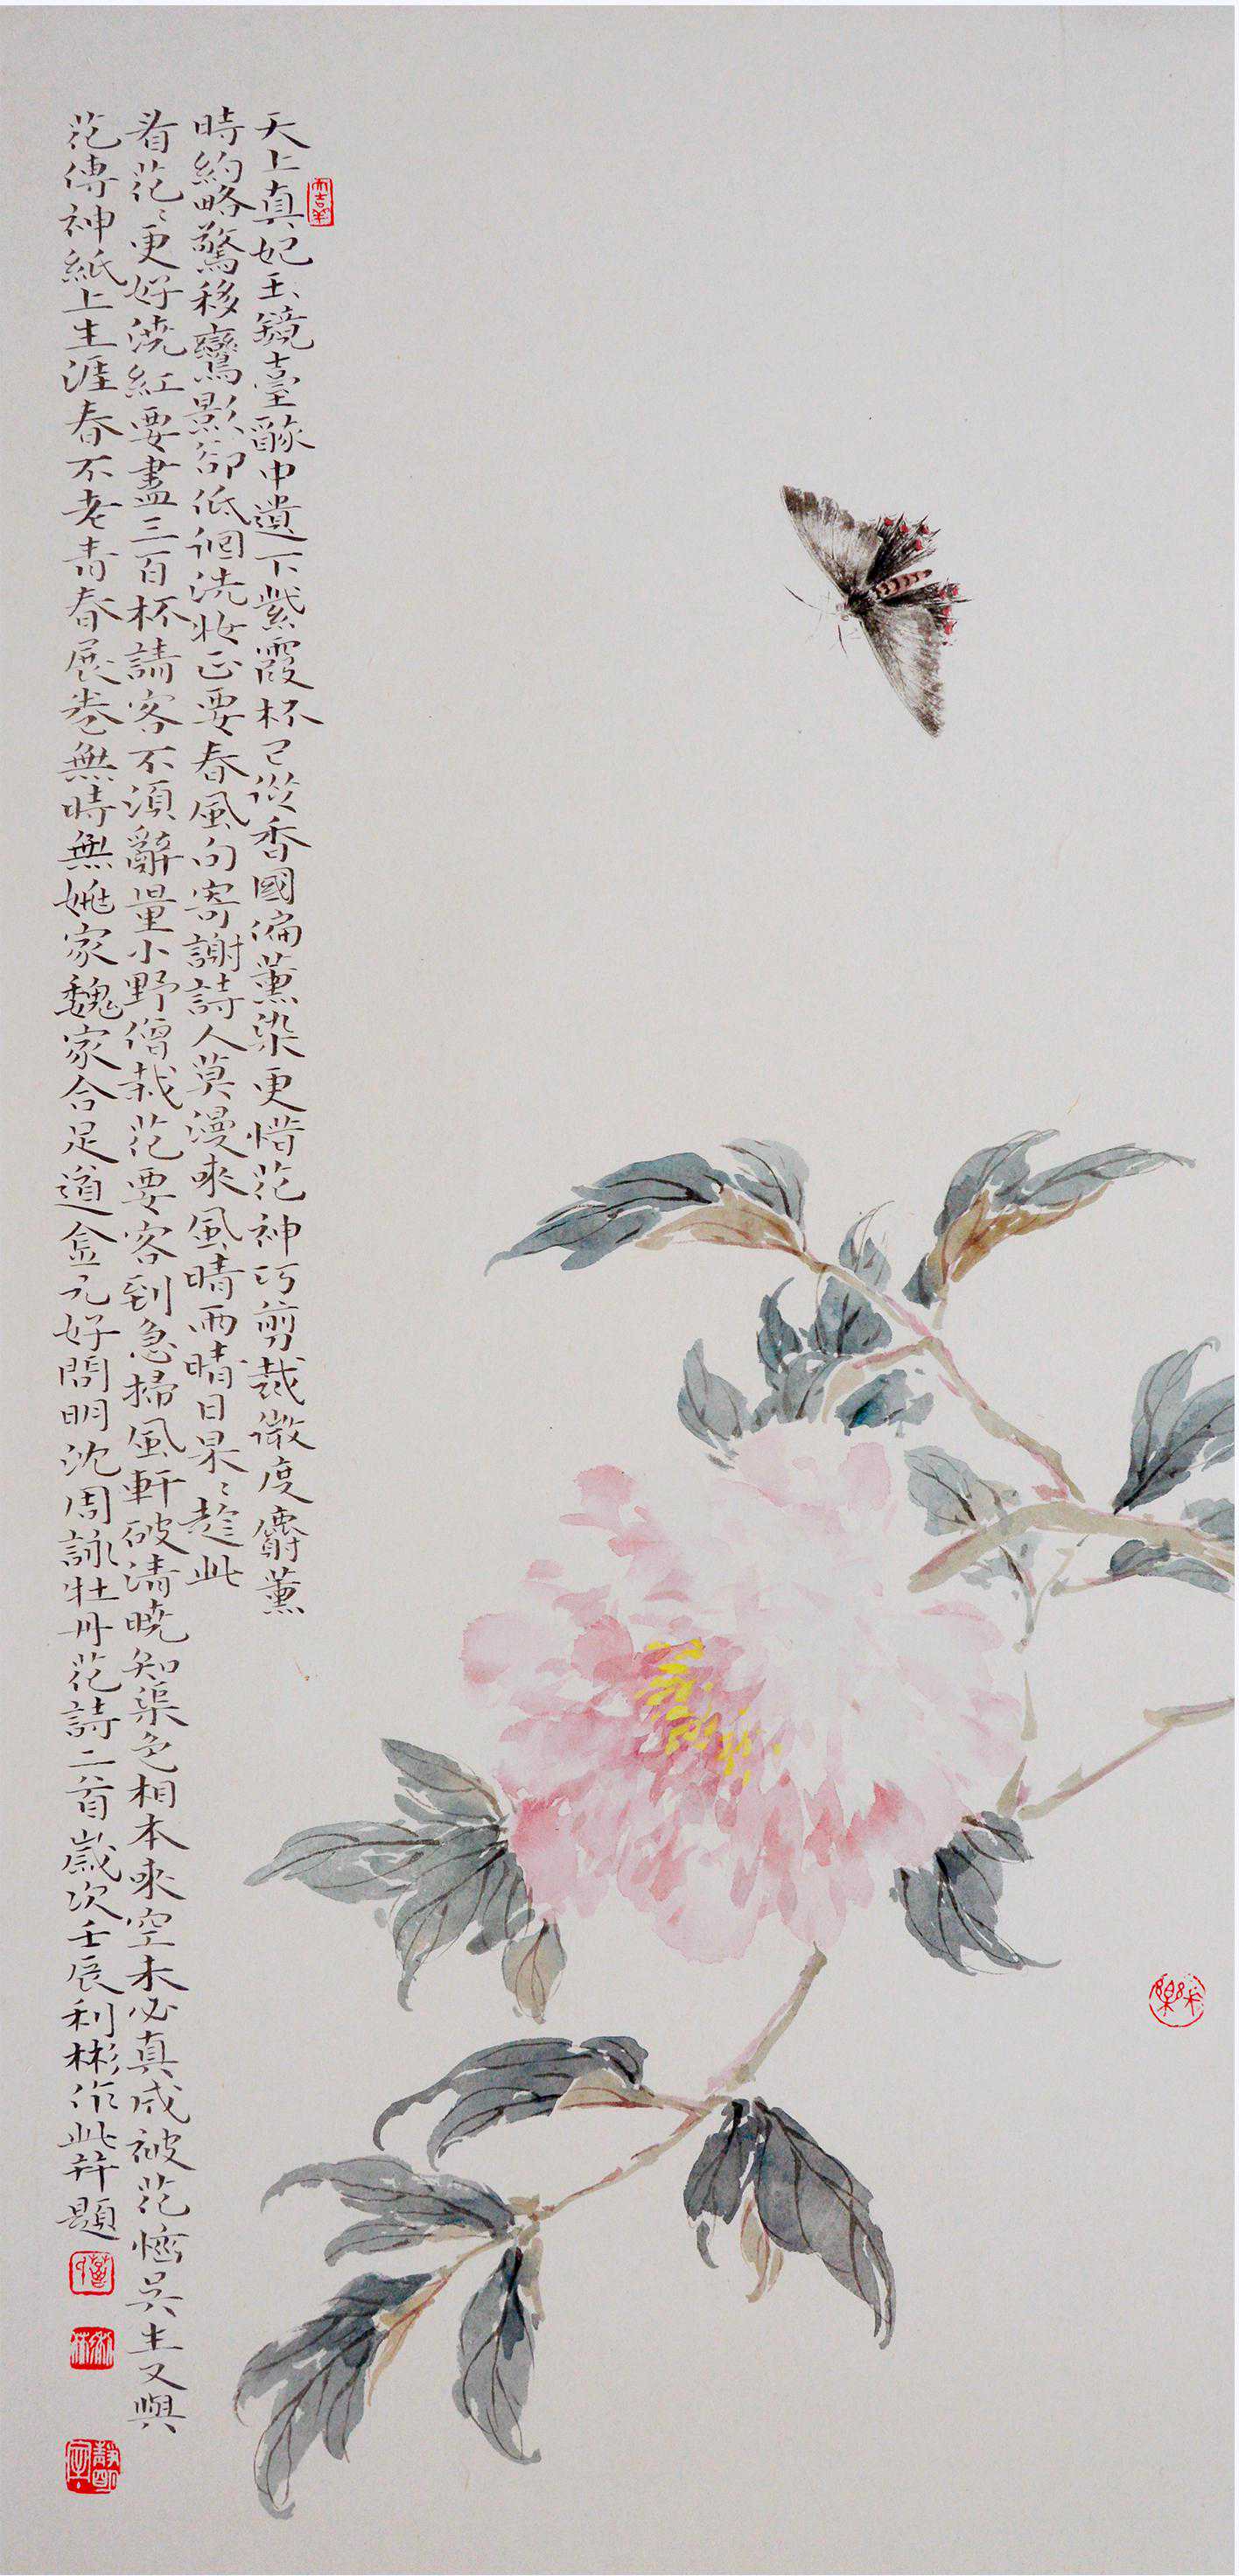 天上真妃玉鏡臺醉中遺下紫霞杯已從香國偏薰染更惜花神巧剪裁微度麝薰
時約略驚移鸞影卻低徊洗妝正要春風句寄謝詩人莫漫來風晴雨晴日杲〻趁此
看花〻更好澆紅要盡三百杯請客不須辭量小野僧栽花要客到急掃風軒破清曉知渠色相本來空未必真成被花惱吳生又與
花傳神紙上生涯春不老青春展卷無時無姚家魏家合足道金元好問明沈周詠牡丹花詩二首歲次壬辰利彬作此并題
大吉羊